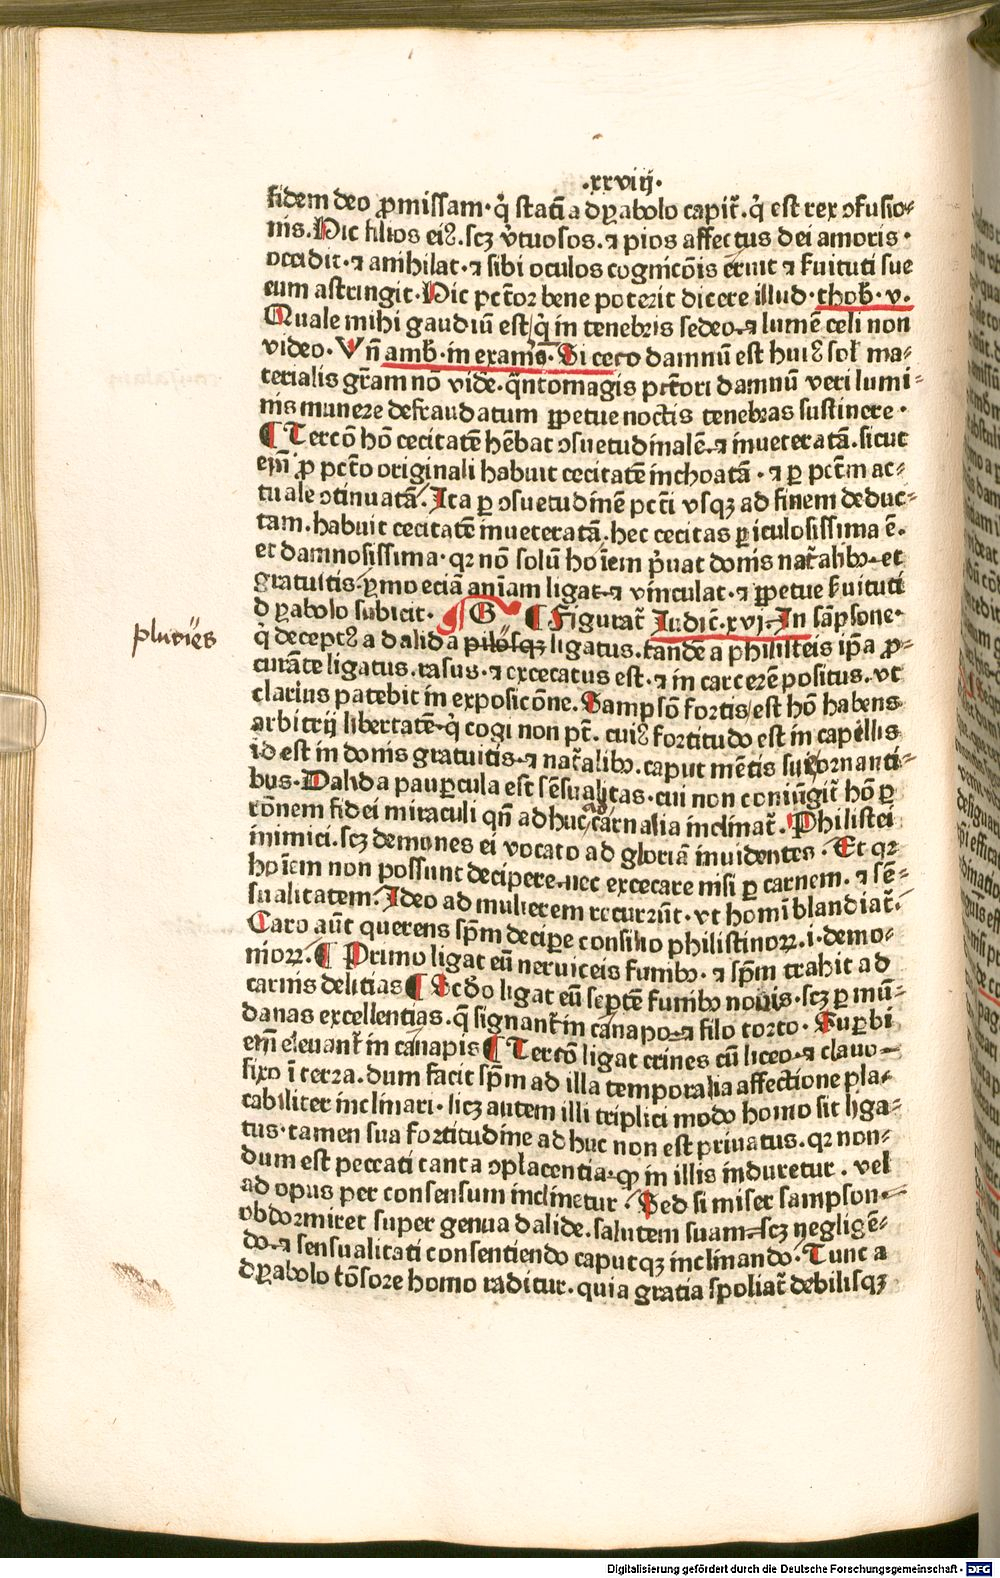 .xxviij.
fidem deo ꝓmissam· q̇ statī a dẏabolo capit᷑. q̇ est rex ↄfusio⸗
nis. Hic filios eiꝰ. scꝫ v̓tuosos. ⁊ pios affectus dei amoris·
occidit· ⁊ anihilat· ⁊ sibi oculos cognicōis eruit ⁊ s̓uituti sue
eum astringit· Hic pct̄or bene poterit dicere illud· thob̄· v.
Quale mihi gaudiū est/ q̇ in tenebris sedeo·⁊ lumē celi non
video. Vn̄ amb̄· in exam̄s· Si ceco damnū est huiꝰ sol᷑ ma⸗
terialis gr̄am nō vidē· qn̄tomagis pct̄ori damnū veri lumi⸗
nis munere defraudatum ꝑpetue noctis tenebras sustinere·
¶ Tercō hō cecitatē hēbat ↄsuetudinalē·⁊ inueteratā. sicut
em̄ ꝓ pct̄o originali habuit cecitatē inchoatā· ⁊ ꝑ pct̄m ac⸗
tuale ↄtinuatā/ Ita ꝑ ↄsuetudinē pct̄i vsqꝫ ad finem deduc⸗
tam. habuit cecitatē inueteratā. hec cecitas ꝑiculosissima ē.
et damnosissima· qꝛ nō solū hoīem p̓uat donis nat᷑alibꝰ·et
gratuitis·ẏmo eciā anīam ligat·⁊ vinculat·⁊ ꝑpetue s̓uituti
dẏabolo subicit. G ¶ Figurat᷑ Iudic̄. xvj. In sāpsone·
pluries
q̇ deceptꝰ a dalida pilosqꝫ ligatus. tandē a philisteis ip̄a ꝓ⸗
curāte ligatus. rasus· ⁊ excecatus est· ⁊ in carcerē positus. vt
clarius patebit in exposicōne. Sampsō fortis/ est hō habens
arbitrij libertatē·q̇ cogi non pt̄. cuiꝰ fortitudo est in capillis
id est in donis gratuitis·⁊ nat᷑alibꝰ. caput mētis sue ornanti⸗
bus. Dalida pauꝑcula est sēsualitas· cui non coniūgit᷑ hō ꝑ
rōnem fidei miraculi qn̄ adhuc ad carnalia inclinat᷑. Philistei
inimici. scꝫ demones ei vocato ad gloriā inuidentes. Et qꝛ
hoīem non possunt decipere·nec excecare nisi ꝑ carnem. ⁊ sē⸗
sualitatem/ Ideo ad mulierem recurrūt. vt homī blandiat᷑.
Caro aūt querens sp̄m decipe consilio philistinoꝝ. i. demo⸗
nioꝝ. ¶ Primo ligat eū neruiceis funibꝰ. ⁊ sp̄m trahit ad
carnis delitias ¶ Scd̄o ligat eū septē funibꝰ nouis. scꝫ ꝑ mū⸗
danas excellentias. q̄ signant᷑ in canapo·⁊ filo torto. Suꝑbi
em̄ eleuant᷑ in canapis ¶ Tercō ligat crines cū liceo·⁊ clauo⸗
fixo ī terra. dum facit sp̄m ad illa temporalia affectione pla⸗
cabiliter inclinari. licꝫ autem illi triplici modo homo sit liga⸗
tus· tamen sua fortitudine ad huc non est priuatus. qꝛ non⸗
dum est peccati tanta ↄplacentia·ꝙ in illis induretur. vel
ad opus per consensum inclinetur. Sed si miser sampson⸗
obdormiret super genua dalide. salutem suam⸗scꝫ negligē⸗
do·⁊ sensualitati consentiendo caputqꝫ inclinando. Tunc a
dẏabolo tōsore homo raditur. quia gratia spoliat᷑ debilisqꝫ
Digitalisierung gefördert durch die Deutsche Forschungsgemeinschaft - DFG